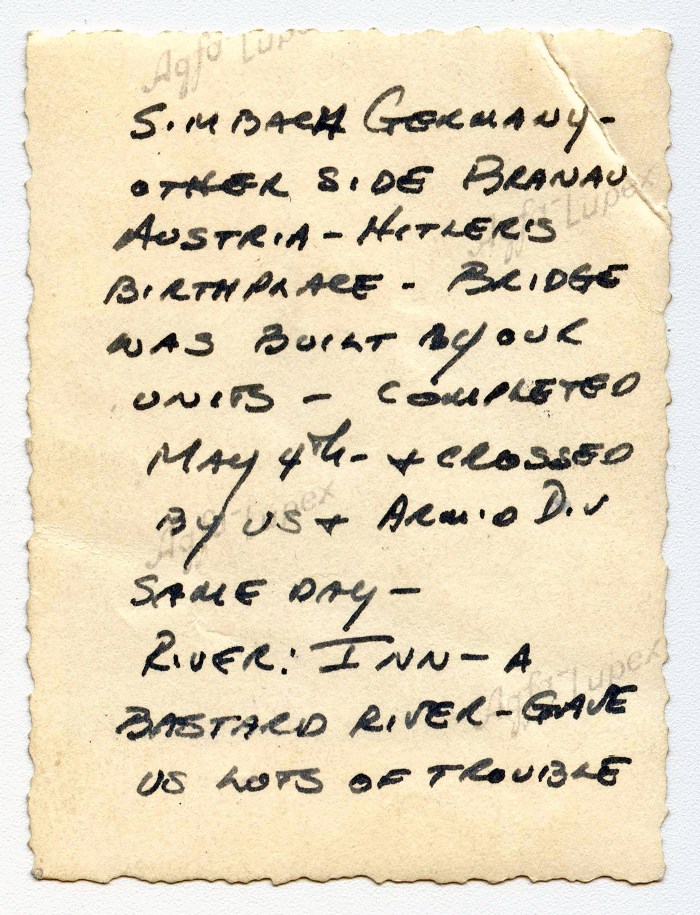 Agfa Lupe
SIMBACH GERMANY-
OTHER SIDE BRANAU
Agfa-Lupex
AUSTRIA - HITLER'S
BIRTHPLACE - BRIDGE
WAS BUILT BY OUR
UNITS - COMPLETED
MAY 4th- + CROSSED
BY US + ARM'D DIV
Agfa-Lupex
SAME DAY -
RIVER: INN - A
Agfa-Lupex
BASTARD RIVER - GAVE
US LOTS OF TROUBLE